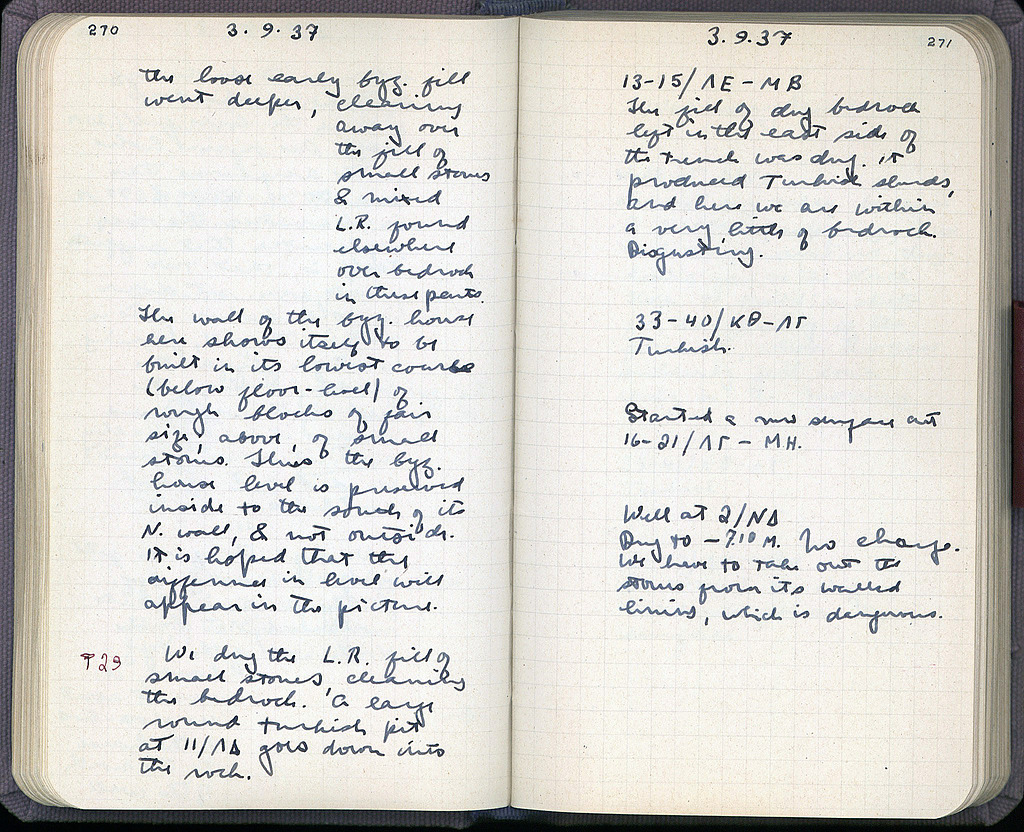 270
3.9.37
the loose early byz. fill
went deeper, cleaning
away over
the fill of
small stones
& mixed
L.R. found
elsewhere
over bedrock
in these parts.
The wall of the byz. house
here shows itself to be
built in its lowest course
(below floor-level) of
rough blocks of fair
size, above, of small
stones. Thus the byz.
house level is preserved
inside to the south of its
N. wall, & not outside.
It is hoped that the
difference in level will
appear in the picture.
P 29
We dug the L.R. fill of
small stones, cleaning
the bedrock. A large
round Turkish pit
at 11/ΛΔ goes down into
the rock.
3.9.37
271
13-15/ΛΕ - ΜΒ
The fill of dug bedrock
left in the east side of
the trench was dug. It
produced Turkish sherds,
and here we are within
a very little of bedrock.
Disgusting.
33-40/ΚΘ-ΛΓ
Turkish.
Started a new surface at
16-21/ΛΓ - ΜΗ.
Well at 2/ΝΔ
Dug to - 7.10 M. No change.
We have to take out the
stones from its walled
lining, which is dangerous.